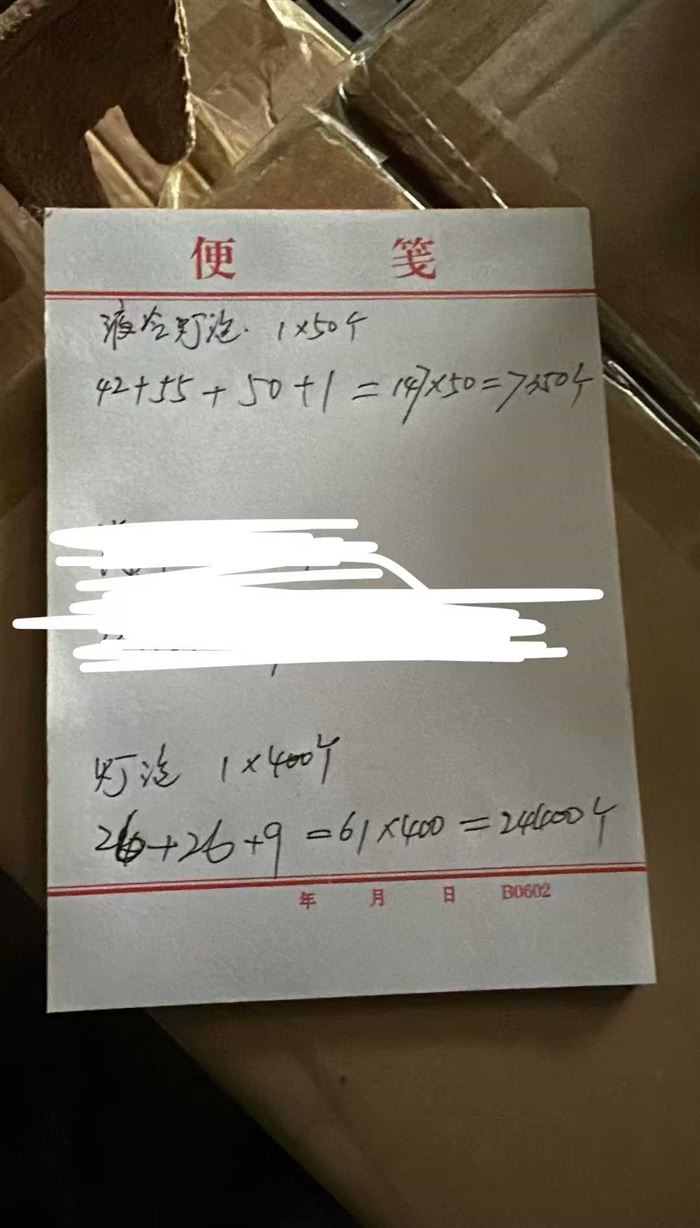 便 笺
液冷灯泡. 1×50个
42+55+50+1=147×50=7350个
灯泡 1×400个
26+26+9=61×400=24400个
年 月 日 B0602